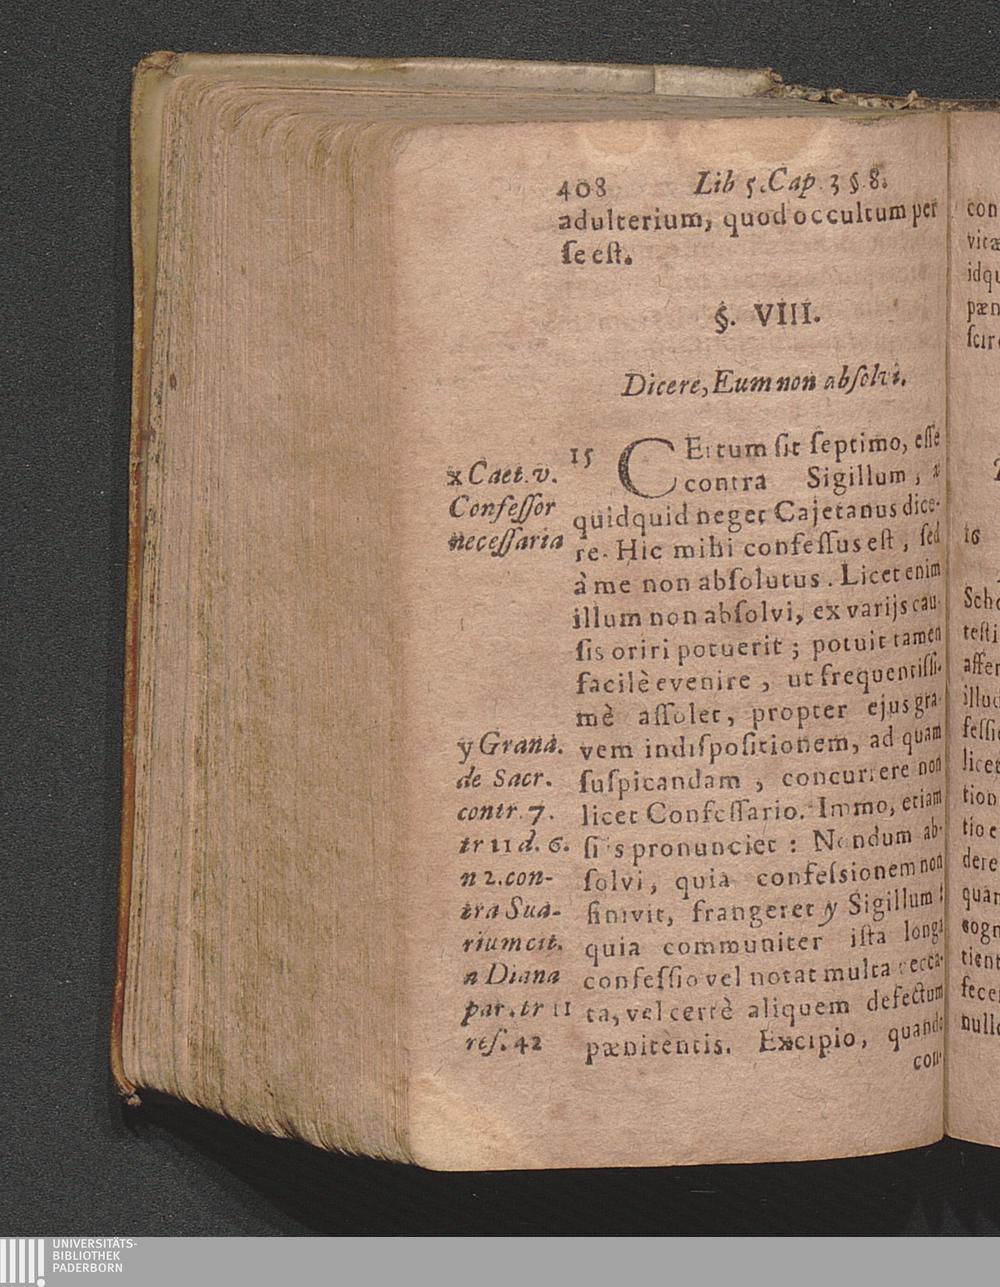 408 Lib 5.Cap 3 § 8.
adulterium, quod occultum per
ſe eſt.
§. VIII.
Dicere, Eum non abſolvi.
15 CErtum ſit ſeptimo, eſſe
contra Sigillum, x
quidquid neget Cajetanus dice-
re. Hic mihi confeſſus eſt, ſed
à me non abſolutus. Licet enim
illum non abſolvi, ex varijs cau-
ſis oriri potuerit; potuit tamen
facilè evenire, ut frequentiſſi-
mè aſſolet, propter ejus gra-
vem indiſpoſitionem, ad quam
ſuſpicandam, concurrere non
licet Confeſſario. Immo, etiam
ſi is pronunciet: Nondum ab-
ſolvi, quia confeſsionem non
finivit, frangeret y Sigillum:
quia communiter iſta longa
confeſſio vel notat multa pecca-
ta, vel certè aliquem defectum
pænitèntis. Excipio, quando
con-
x Caet. v.
Confeſſor
neceſſaria
y Granà.
de Sacr.
contr. 7.
tr 11 d. 6.
n 2. con-
tra Sua-
rium cit.
a Diana
par. tr 11
reſ. 42
con
vitæ
idqu
pæn
ſcire
16
Scho
teſti
affer
illud
feſſi
licet
tion
tio e
dere
quan
cogn
tient
fece
nullo
UNIVERSITÄTS-
BIBLIOTHEK
PADERBORN